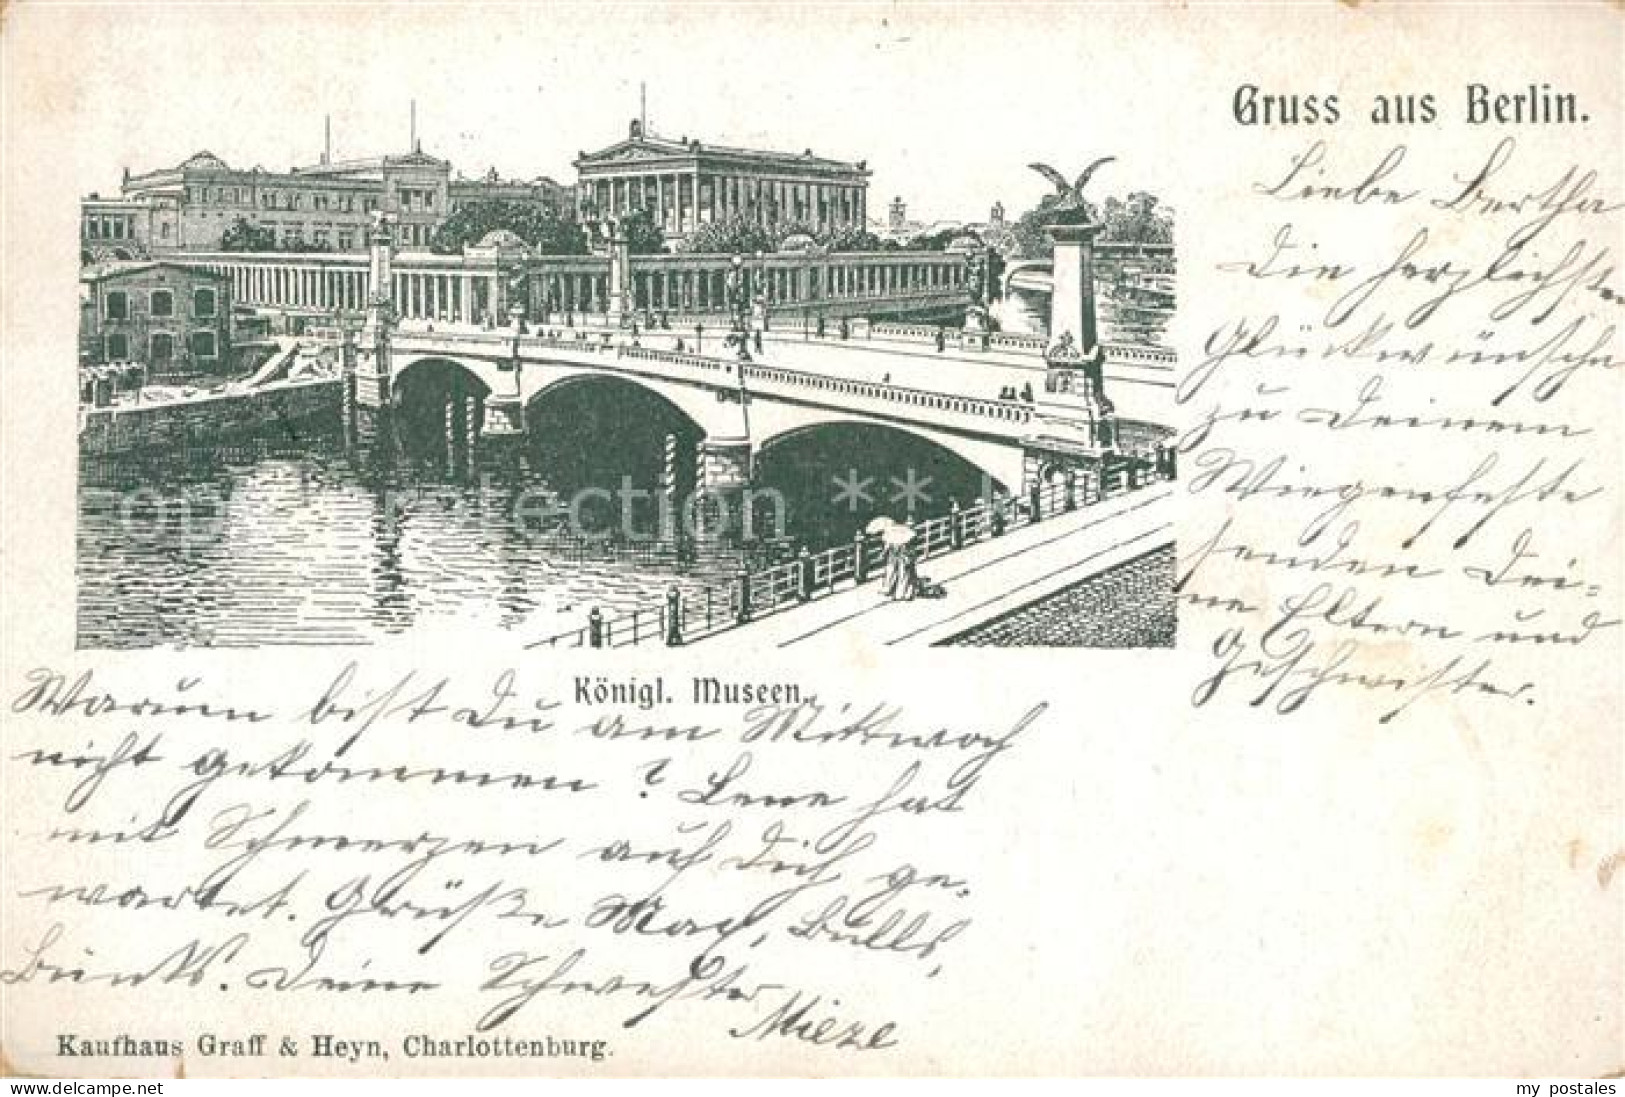 Gruss aus Berlin.
Liebe Bertha
Die herzlichsten
Glückwünsche
zu Deinem
Wiegenfeste
senden Dei-
ne Eltern und
Geschwister.
Königl. Museen.
Warum bist Du am Mittwoch
nicht gekommen? Lene hat
mit Schmerzen auf Dich ge-
wartet. Grüße Max,
Deine Schwester
Mieze
Kaufhaus Graff & Heyn, Charlottenburg.
my postales